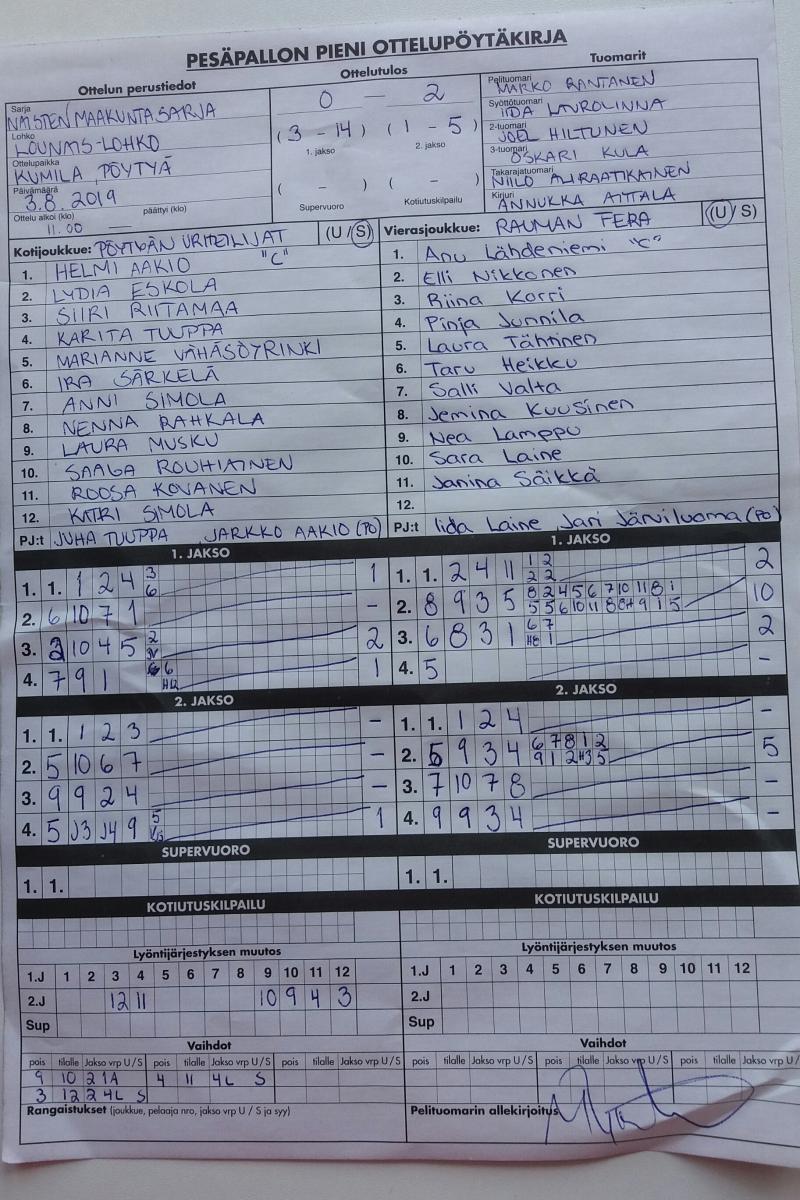 PESÄPALLON PIENI OTTELUPÖYTÄKIRJA
Ottelun perustiedot
Sarja
NAISTEN MAAKUNTASARJA
Lohko
LOUNAIS-LOHKO
Ottelupaikka
KUMILA, PÖYTYÄ
Päivämäärä
3.8.2019
Ottelu alkoi (klo) päättyi (klo)
11.00 —
Ottelutulos
0 – 2
(3 – 14) (1 – 5)
1. jakso 2. jakso
( – ) ( – )
Supervuoro Kotiutuskilpailu
Tuomarit
Pelituomari
MARKO RANTANEN
Syöttötuomari
IIDA LAUROLINNA
2-tuomari
JOEL HILTUNEN
3-tuomari
OSKARI KULA
Takarajatuomari
NIILO
Kirjuri
ANNUKKA AITTALA
Kotijoukkue: PÖYTYÄN URHEILIJAT (U / S)
1. HELMI AAKIO "C"
2. LYDIA ESKOLA
3. SIIRI RIITAMAA
4. KARITA TUUPPA
5. MARIANNE VÄHÄSÖYRINKI
6. IRA SÄRKELÄ
7. ANNI SIMOLA
8. NENNA RAHKALA
9. LAURA MUSKU
10. SAAGA ROUHIAINEN
11. ROOSA KOVANEN
12. KATRI SIMOLA
PJ:t JUHA TUUPPA, JARKKO AAKIO (PO)
Vierasjoukkue: RAUMAN FERA (U / S)
1. Anu Lähdeniemi "C"
2. Elli Nikkonen
3. Riina Korri
4. Pinja Junnila
5. Laura Tähtinen
6. Taru Heikku
7. Salli Valta
8. Jemina Kuusinen
9. Nea Lamppu
10. Sara Laine
11. Janina Säikkä
12.
PJ:t Iida Laine, Jari Järviluoma (PO)
1. JAKSO
1. 1. 1 2 4 3 6 1
2. 6 10 7 1 –
3. 3 10 4 5 2 2
4. 7 9 1 6 6 1
1. JAKSO
1. 1. 2 4 11 1 2 2 2 2
2. 8 9 3 5 8 2 4 5 6 7 10 11 8 1 10
3. 6 8 3 1 6 7 2
4. 5 –
2. JAKSO
1. 1. 1 2 3 –
2. 5 10 6 7 –
3. 9 9 2 4 –
4. 5 J3 J4 9 5 1
2. JAKSO
1. 1. 1 2 4 –
2. 5 9 3 4 6 7 8 1 2 5
3. 7 10 7 8 –
4. 9 9 3 4 –
SUPERVUORO
1. 1.
SUPERVUORO
1. 1.
KOTIUTUSKILPAILU
KOTIUTUSKILPAILU
Lyöntijärjestyksen muutos
1.J 1 2 3 4 5 6 7 8 9 10 11 12
2.J 12 11 10 9 4 3
Sup
Lyöntijärjestyksen muutos
1.J 1 2 3 4 5 6 7 8 9 10 11 12
2.J
Sup
Vaihdot
pois tilalle Jakso vrp U / S pois tilalle Jakso vrp U / S pois tilalle Jakso vrp U / S
9 10 2 1A 4 11 4L S
3 12 2 4L S
Vaihdot
pois tilalle Jakso vrp U / S pois tilalle Jakso vrp U / S pois tilalle Jakso vrp U / S
Rangaistukset (joukkue, pelaaja nro, jakso vrp U / S ja syy)
Pelituomarin allekirjoitus